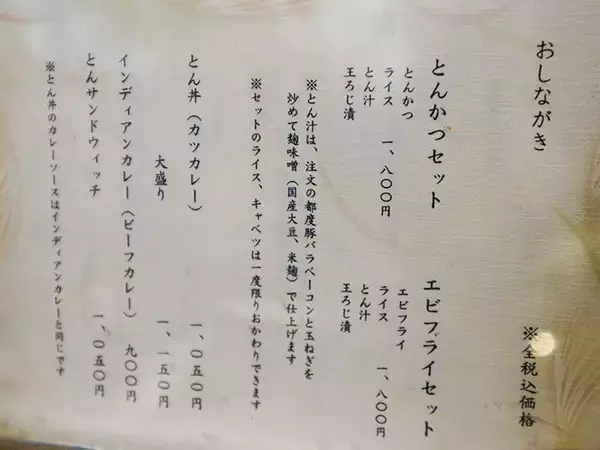 おしながき
※全税込価格
とんかつセット
とんかつ
ライス 一、八〇〇円
とん汁
王ろじ漬
エビフライセット
エビフライ
ライス 一、八〇〇円
とん汁
王ろじ漬
※とん汁は、注文の都度豚バラベーコンと玉ねぎを
炒めて麹味噌（国産大豆、米麹）で仕上げます
※セットのライス、キャベツは一度限りおかわりできます
とん丼（カツカレー） 一、〇五〇円
大盛り 一、一五〇円
インディアンカレー（ビーフカレー） 九〇〇円
とんサンドウィッチ 一、〇五〇円
※とん丼のカレーソースはインディアンカレーと同じです